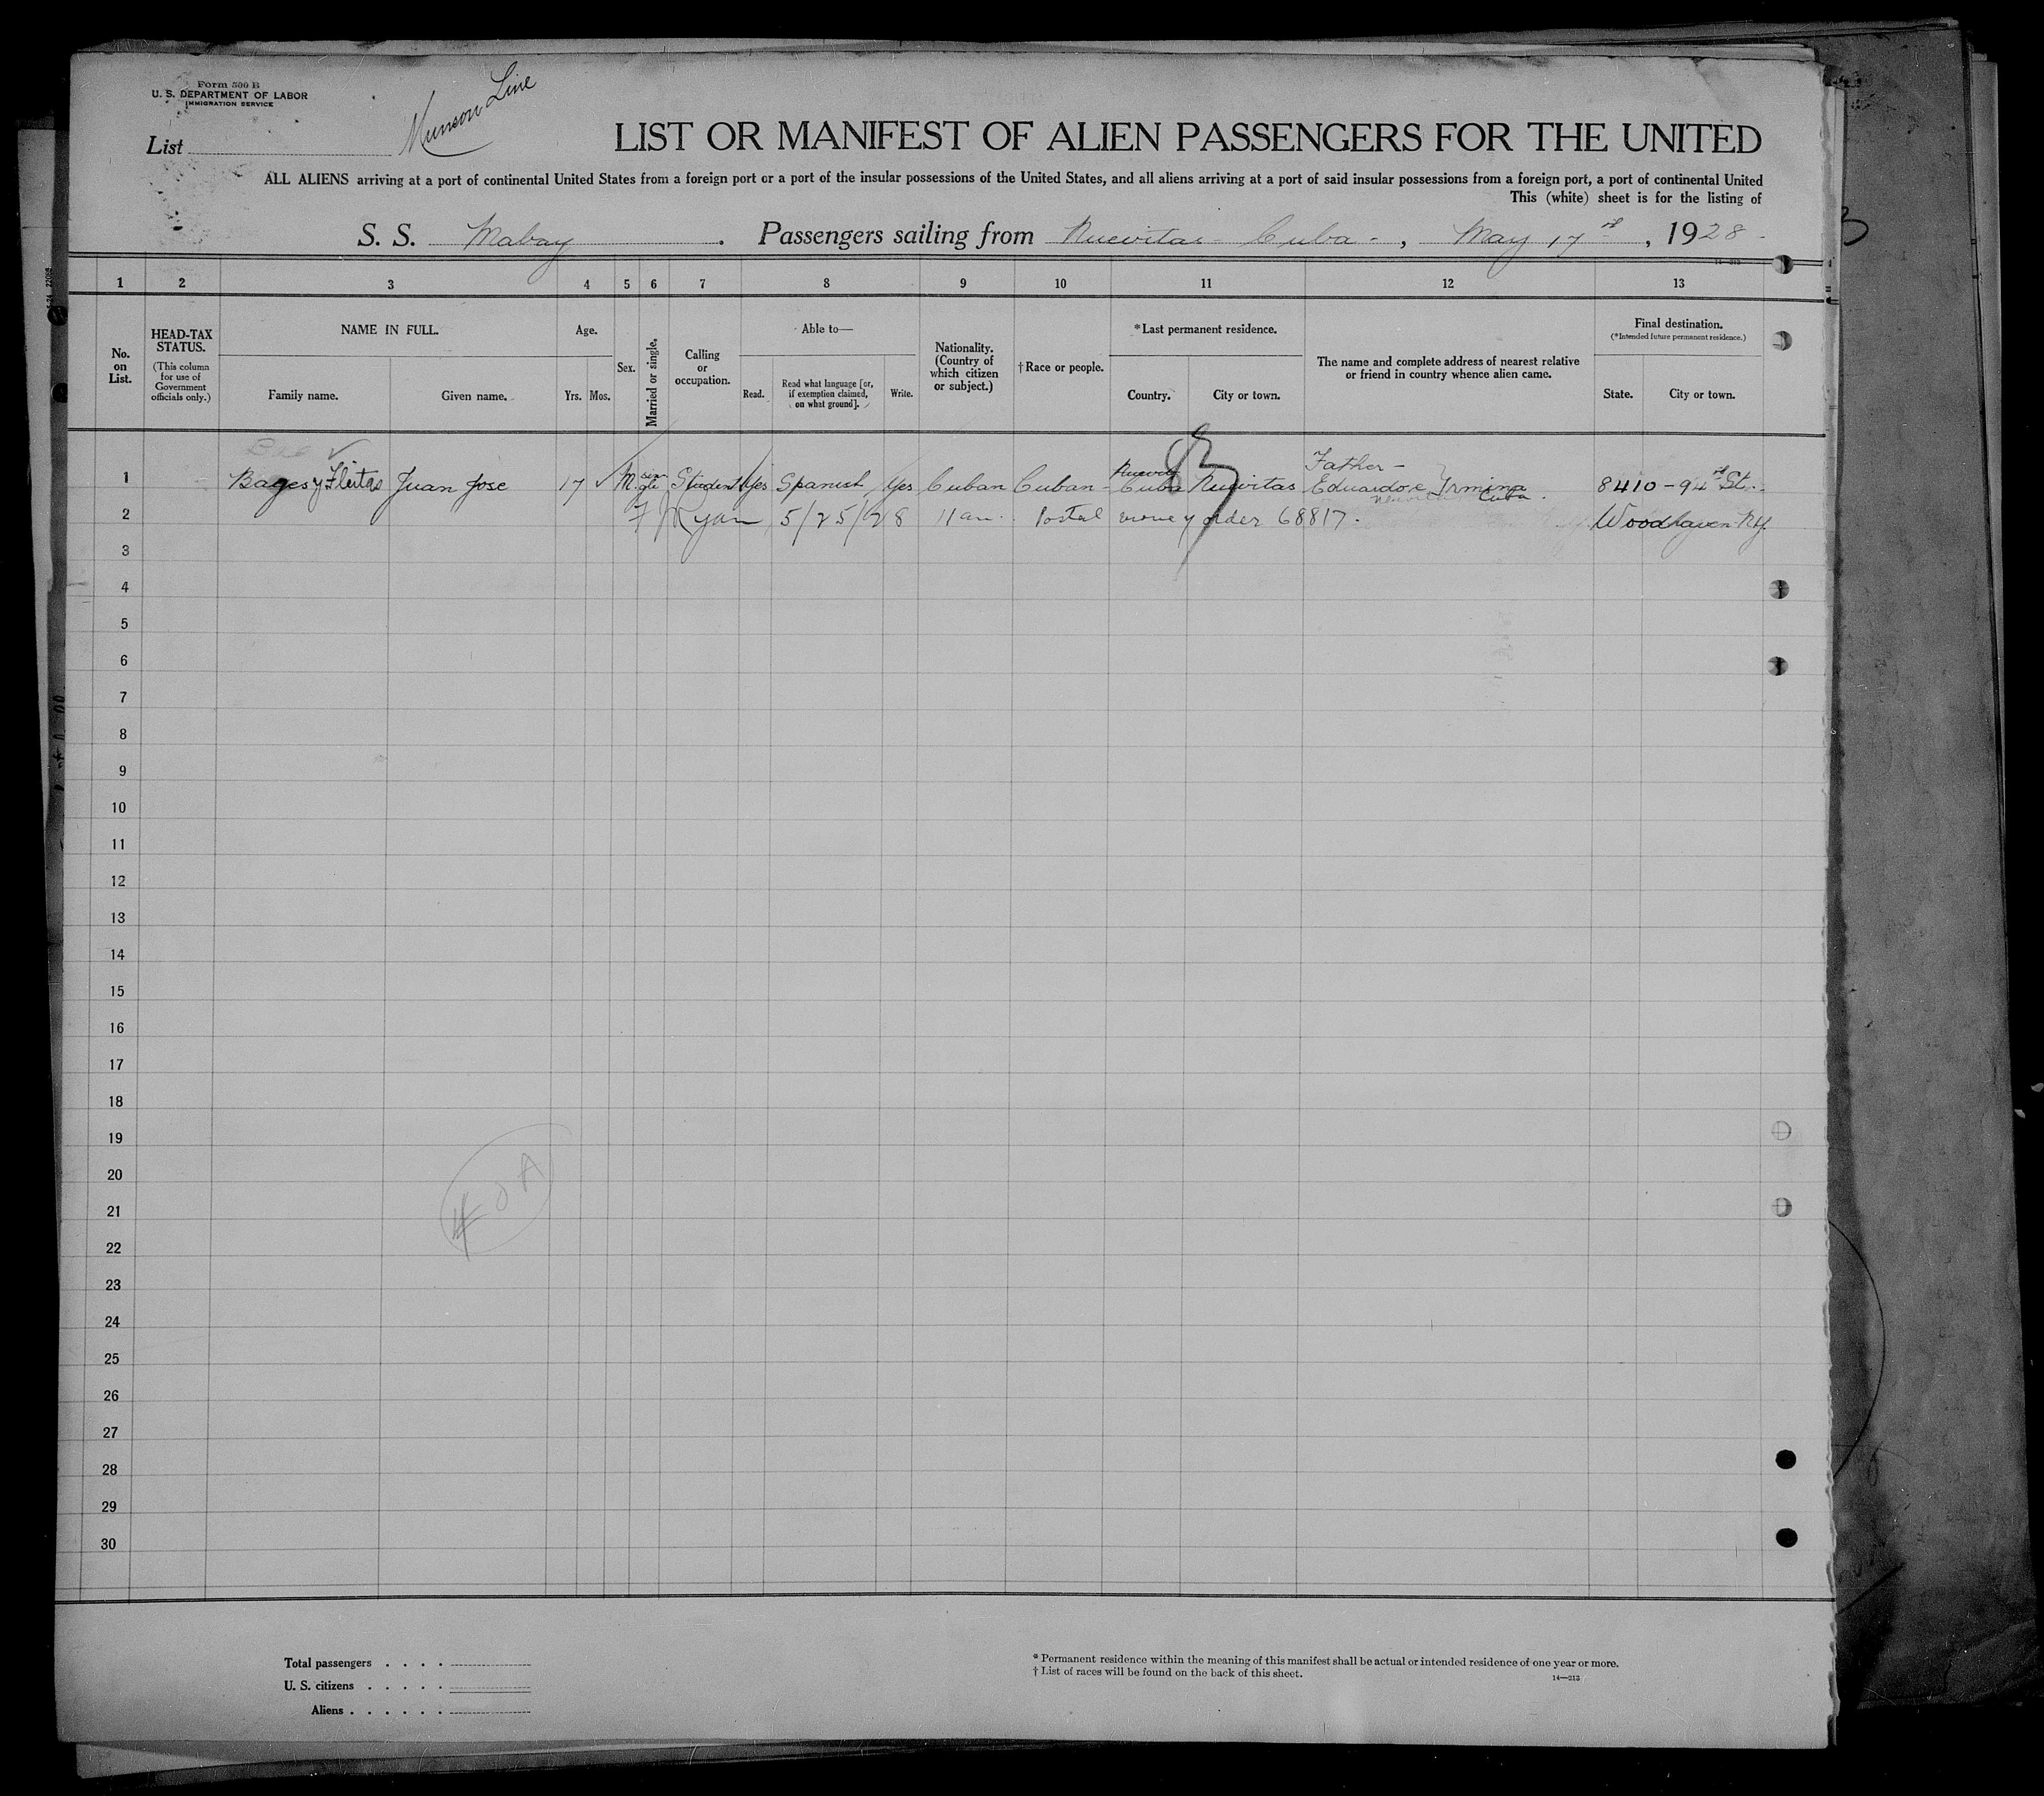 Form 500 B
U. S. DEPARTMENT OF LABOR
IMMIGRATION SERVICE
Munson Line
List
LIST OR MANIFEST OF ALIEN PASSENGERS FOR THE UNITED
ALL ALIENS arriving at a port of continental United States from a foreign port or a port of the insular possessions of the United States, and all aliens arriving at a port of said insular possessions from a foreign port, a port of continental United
This (white) sheet is for the listing of
S. S. Mabay . Passengers sailing from Nuevitas - Cuba - , May 17 , 1928
1 2 3 4 5 6 7 8 9 10 11 12 13
No. on List.
HEAD-TAX STATUS.
(This column for use of Government officials only.)
NAME IN FULL.
Family name. Given name.
Age.
Yrs. Mos.
Sex.
Married or single.
Calling or occupation.
Able to—
Read. Read what language [or, if exemption claimed, on what ground]. Write.
Nationality. (Country of which citizen or subject.)
†Race or people.
*Last permanent residence.
Country. City or town.
The name and complete address of nearest relative or friend in country whence alien came.
Final destination.
(*Intended future permanent residence.)
State. City or town.
1 Bages y Fleitas Juan Jose 17 M Student Yes Spanish Yes Cuban Cuban - Cuba Nuevitas Father - Eduardo Cuba. 8410 - 94 St.
2 Ryan 5/25/28 11 am Postal money order 68817. Woodhaven N.Y.
3
4
5
6
7
8
9
10
11
12
13
14
15
16
17
18
19
20
21
22
23
24
25
26
27
28
29
30
Total passengers
U. S. citizens
Aliens
* Permanent residence within the meaning of this manifest shall be actual or intended residence of one year or more.
† List of races will be found on the back of this sheet.
14—213